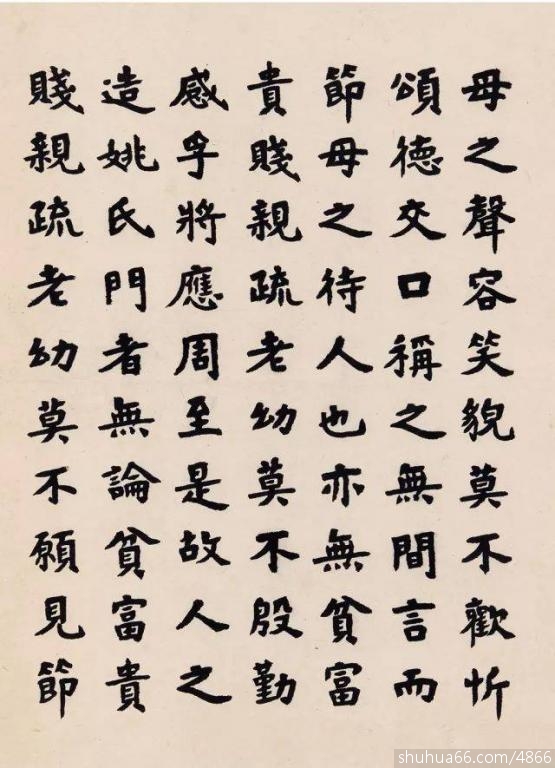 賤親疏老幼莫不願見節
造姚氏門者無論貧富貴
感孚將應周至是故人之
貴賤親疏老幼莫不殷勤
節母之待人也亦無貧富
頌德交口稱之無間言而
母之聲容笑貌莫不歡忻
shuhua66.com/4866